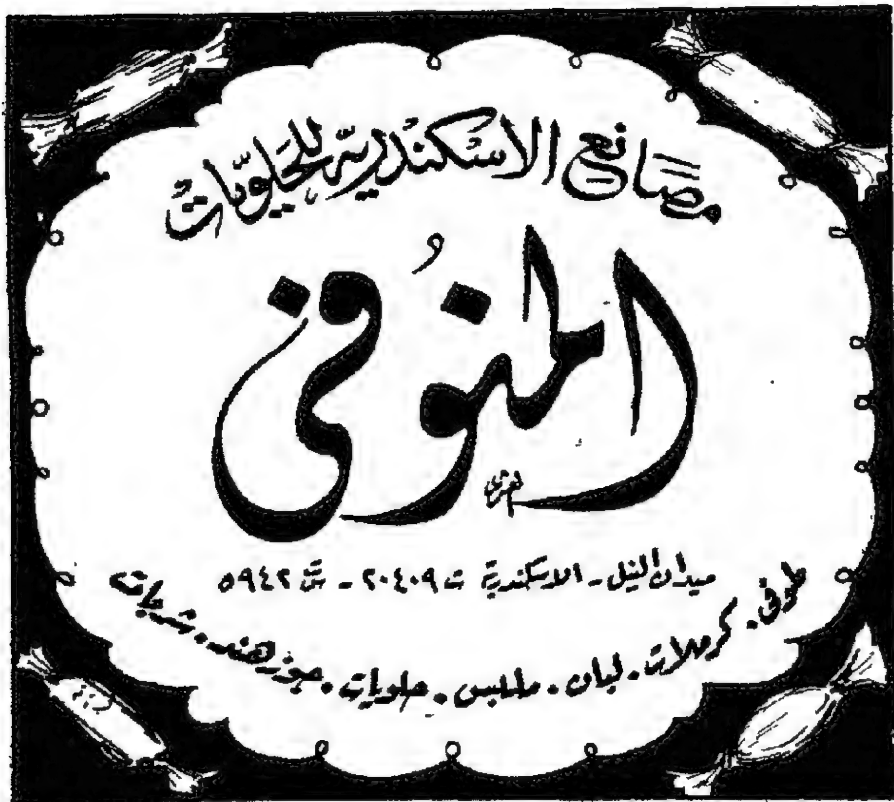 مصانع الاسكندرية للحلويات
المنوفى
ميدان النيل - الاسكندرية ت ٢٠٤٠٩ - س ت ٥٩٤٢
طوفى . كرملات . لبان . ملبس . حلويات . جوز هند . شربات